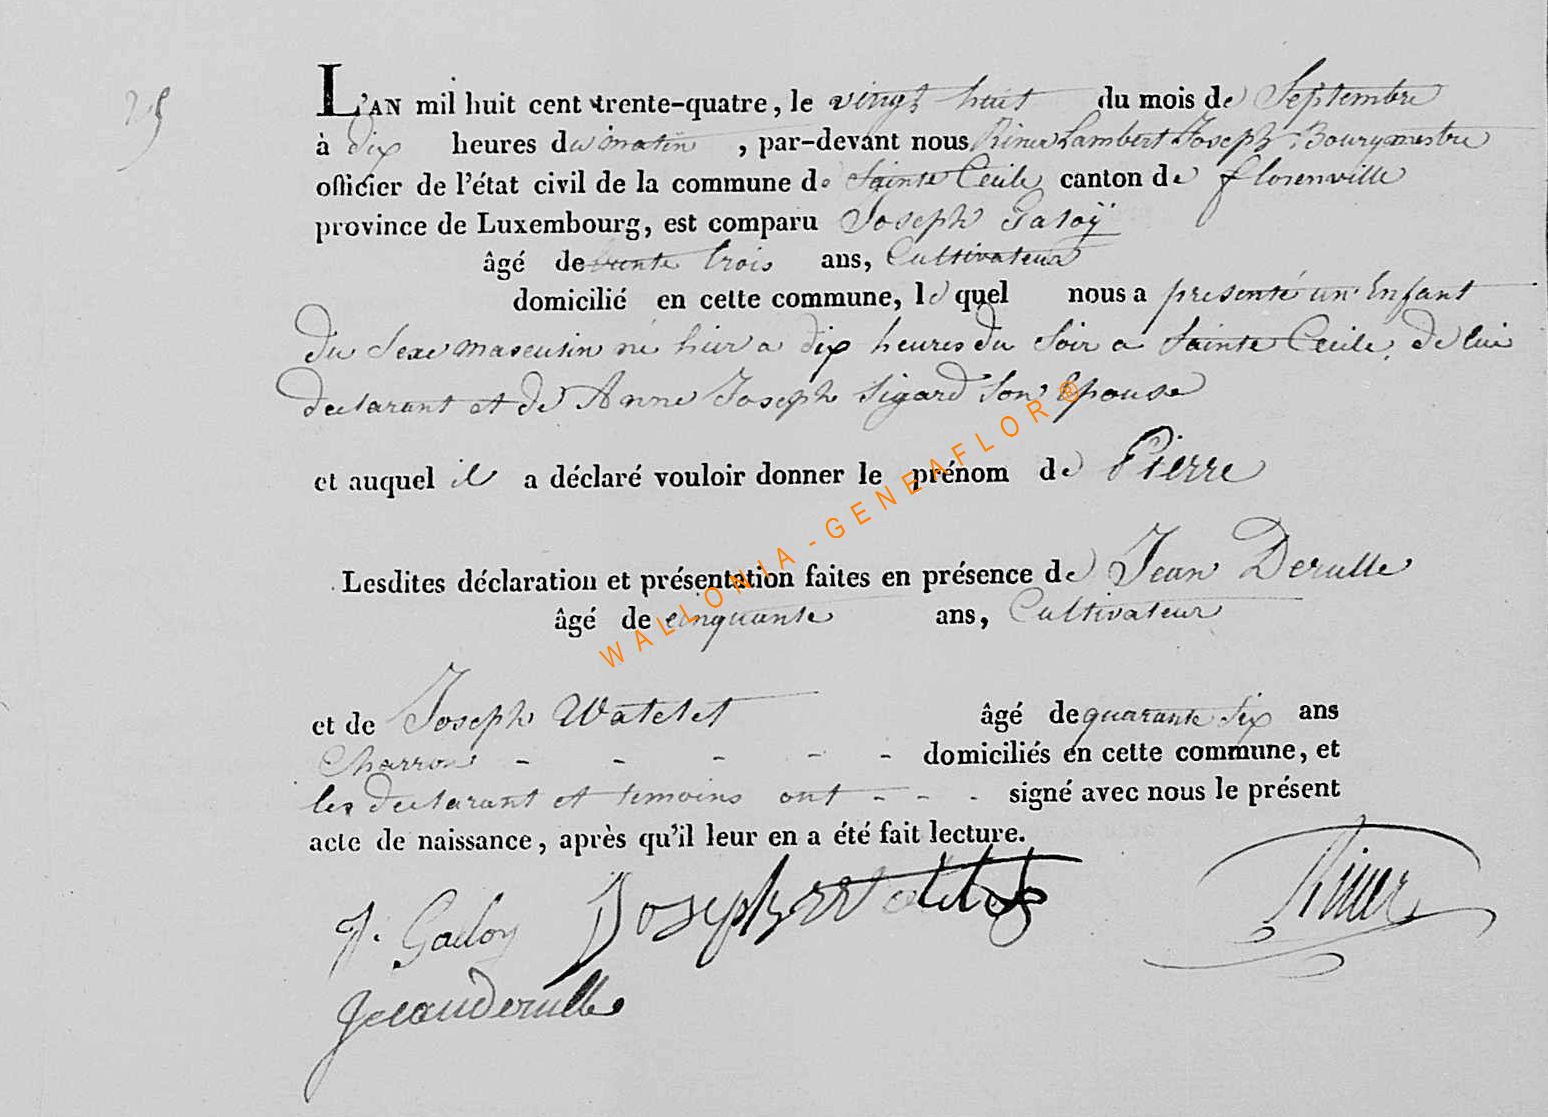 25
L'AN mil huit cent trente-quatre, le vingt huit du mois de Septembre
à dix heures du matin, par-devant nous Riner Lambert Joseph, Bourgmestre
officier de l'état civil de la commune de Sainte Cecile canton de florenville
province de Luxembourg, est comparu Joseph
âgé de trente trois ans, Cultivateur
domicilié en cette commune, le quel nous a presenté un Enfant
du Sexe masculin né hier a dix heures du Soir a Sainte Cecile, de lui
declarant et de Anne Joseph Sigard Son Epouse
et auquel il a déclaré vouloir donner le prénom de Pierre
Lesdites déclaration et présentation faites en présence de Jean Derulle
âgé de cinquante ans, Cultivateur
et de Joseph Watelet âgé de quarante Six ans
Charron - - - - - domiciliés en cette commune, et
les declarant et temoins ont - - - signé avec nous le présent
acte de naissance, après qu'il leur en a été fait lecture.
J. Joseph Watelet Riner
Jean Derulle
WALLONIA - GENEAFLOR ®